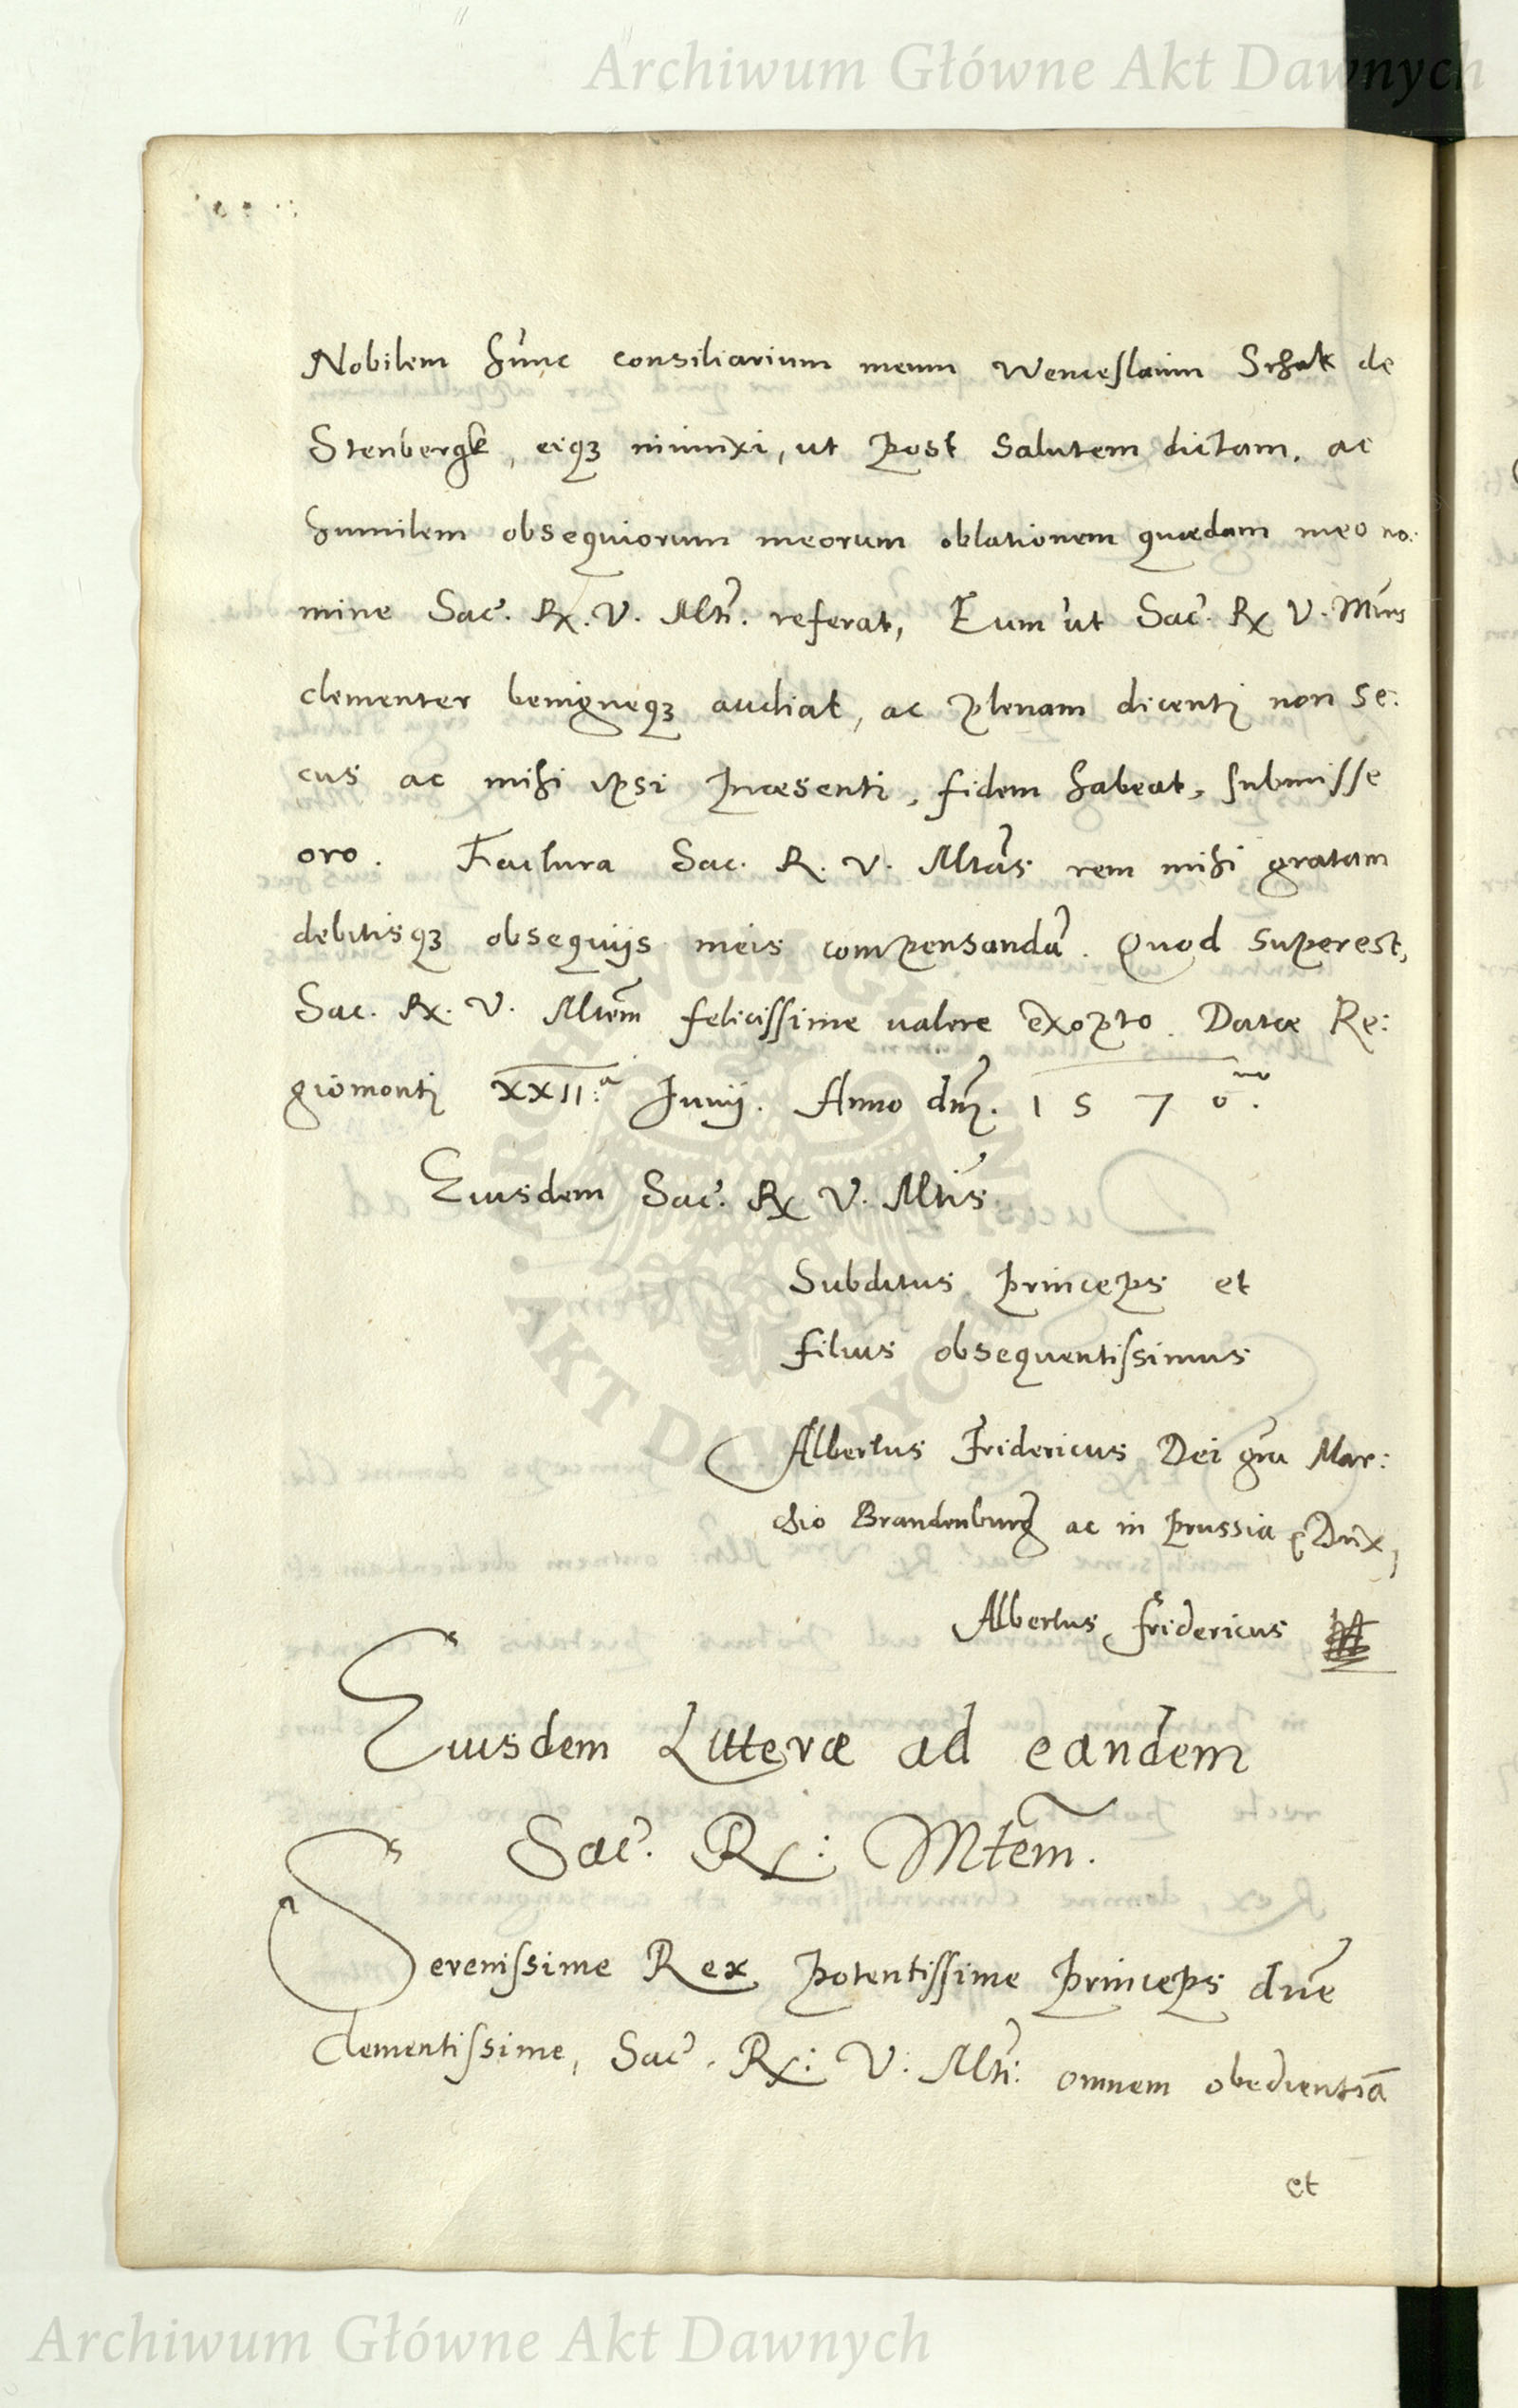 Archiwum Główne Akt Dawnych
Nobilem hunc consiliarium meum Wenceslaum Schak de
Stenbergk, eiqꝫ iniunxi, ut post salutem dictam, ac
humilem obsequiorum meorum oblationem quædam meo no:
mine Sac. Rx. V. Mti. referat, Eum ut Sac. Rx V. Mtas
clementer benigneqꝫ audiat, ac plenam dicenti non se:
cus ac mihi ipsi præsenti, fidem habeat, submisse
oro. Factura Sac. R. V. Mtas rem mihi gratam
debitisqꝫ obsequijs meis compensandã. Quod superest,
Sac. Rx. V. Mtem felicissime valere exopto. Datæ Re:
giomonti XXII.ª Junij. Anno dnj. 1570.mo
Eiusdem Sac. Rx V. Mtis
Subditus princeps et
filius obsequentissimus
Albertus Fridericus Dei gra Mar:
chio Brandenburg ac in prussia Dux,
Albertus fridericus
Eiusdem Litteræ ad eandem
Sac. Rx: Mtem.
Serenissime Rex potentissime princeps dne
clementissime, Sac. Rx: V: Mti: omnem obedientiã
et
ARCHIWUM GŁÓWNE
AKT DAWNYCH
Archiwum Główne Akt Dawnych